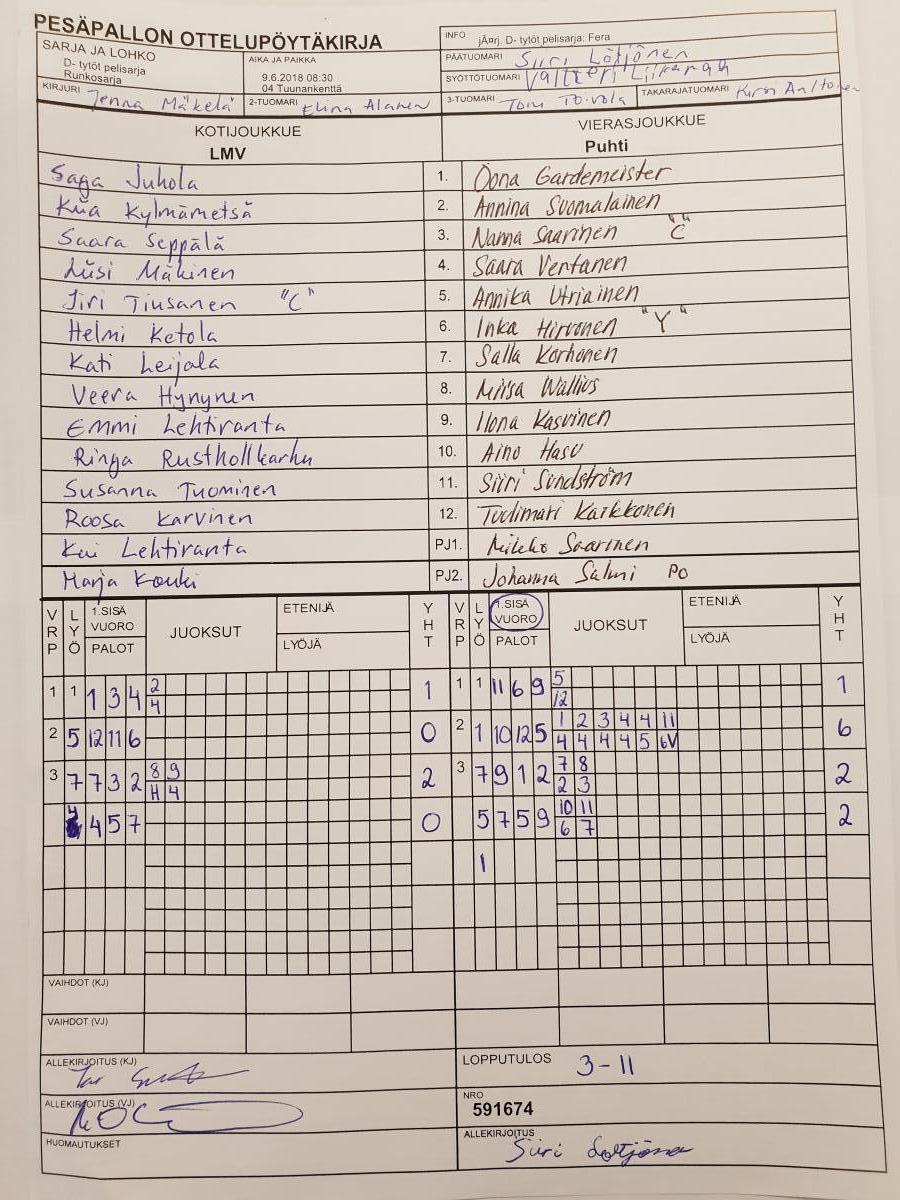 PESÄPALLON OTTELUPÖYTÄKIRJA
SARJA JA LOHKO
D- tytöt pelisarja
Runkosarja
AIKA JA PAIKKA
9.6.2018 08:30
04 Tuunankenttä
INFO jÄ¤rj. D- tytöt pelisarja: Fera
PÄÄTUOMARI Siiri Lötjönen
SYÖTTÖTUOMARI Valtteri
KIRJURI Jenna Mäkelä 2-TUOMARI Elina Alanen 3-TUOMARI Tomi Toivola TAKARAJATUOMARI Kirsi Aaltonen
KOTIJOUKKUE VIERASJOUKKUE
LMV Puhti
Saga Juhola 1. Oona Gardemeister
Kiia Kylmämetsä 2. Annina Suomalainen
Saara Seppälä 3. Nanna Saarinen "C"
Liisi Mäkinen 4. Saara Vertanen
Jiri Tiusanen "C" 5. Annika Utriainen
Helmi Ketola 6. Inka Hirvonen "Y"
Kati Leijala 7. Salla Korhonen
Veera Hynynen 8. Miisa Wallius
Emmi Lehtiranta 9. Ilona Kasvinen
Ringa Rusthollkarhu 10. Aino Hasu
Susanna Tuominen 11. Siiri Sundström
Roosa Karvinen 12. Tuulimari Karkkonen
Kai Lehtiranta PJ1. Mikko Saarinen
Marja Kouki PJ2. Johanna Salmi PO
VRP LYÖ 1.SISÄ VUORO PALOT JUOKSUT ETENIJÄ LYÖJÄ YHT VRP LYÖ 1.SISÄ VUORO PALOT JUOKSUT ETENIJÄ LYÖJÄ YHT
1 1 1 3 4 2 1 1 1 11 6 9 5 1
4 12
2 5 12 11 6 0 2 1 10 12 5 1 2 3 4 4 11 6
4 4 4 4 5 6V
3 7 7 3 2 8 9 2 3 7 9 1 2 7 8 2
H 4 2 3
4 4 5 7 0 5 7 5 9 10 11 2
6 7
1
VAIHDOT (KJ)
VAIHDOT (VJ)
ALLEKIRJOITUS (KJ) LOPPUTULOS 3-11
ALLEKIRJOITUS (VJ) NRO
591674
HUOMAUTUKSET ALLEKIRJOITUS
Siiri Lötjönen